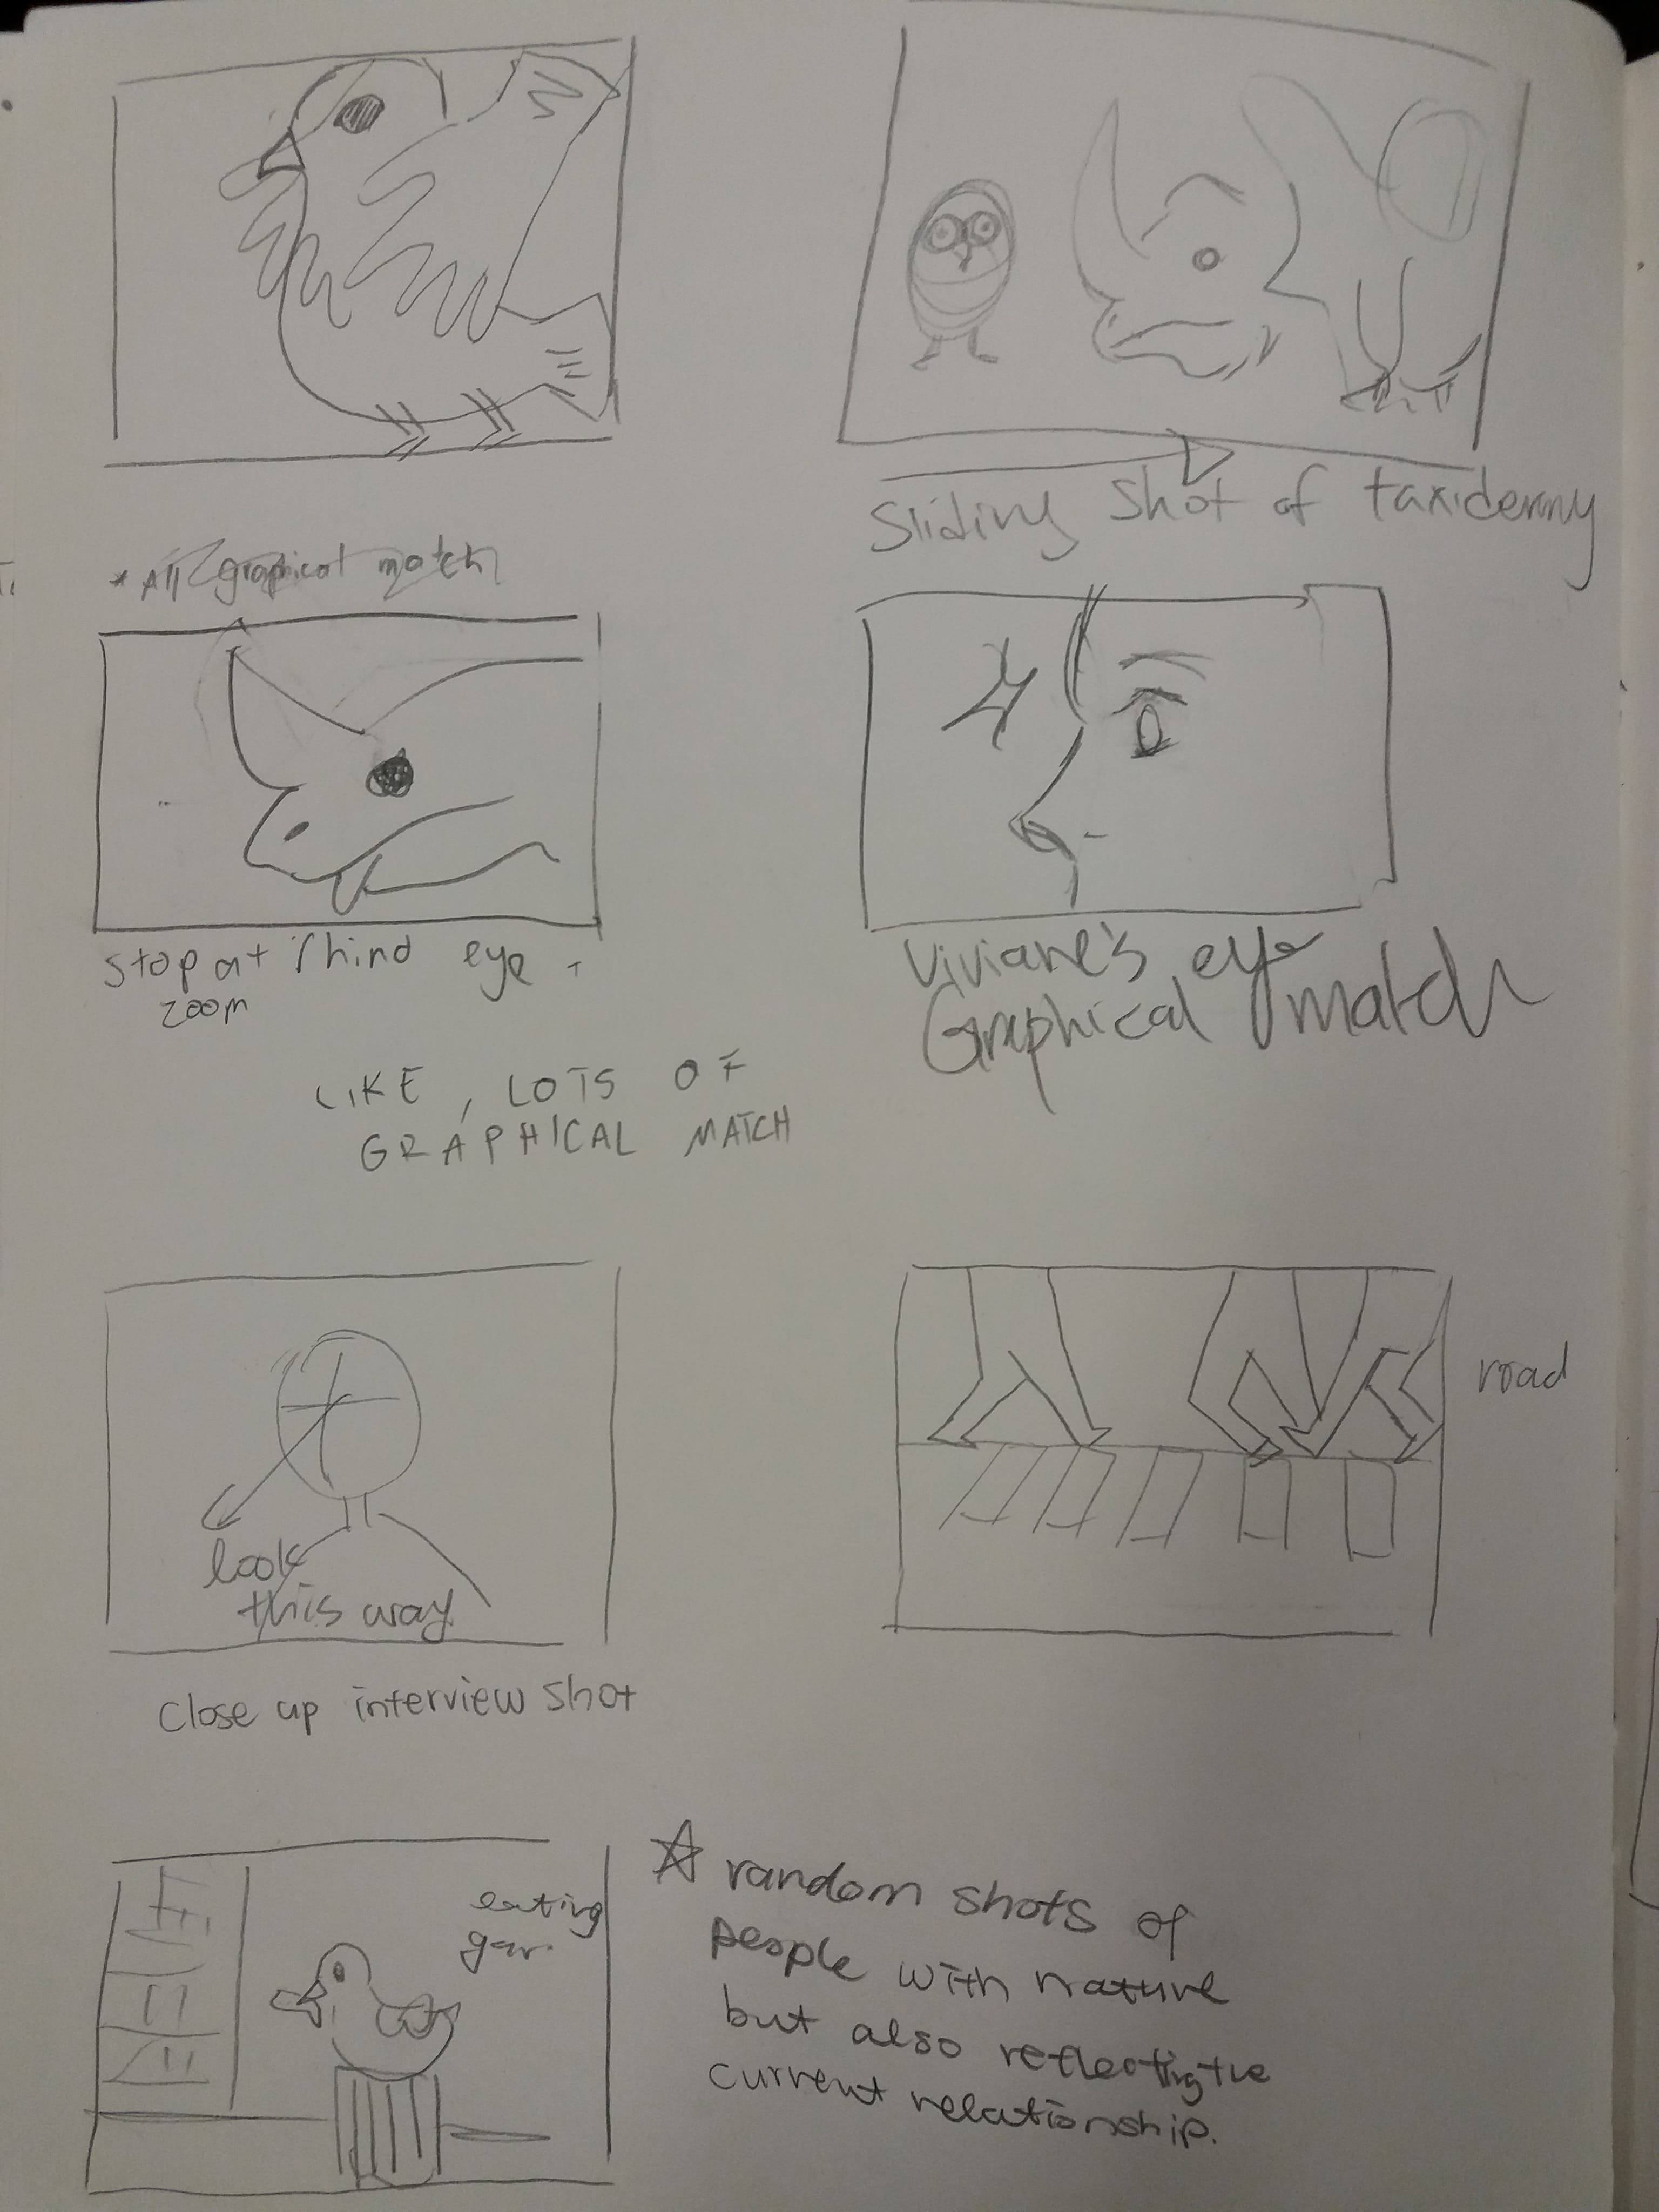 Sliding shot of taxidermy
* All graphical match
Stop at rhino eye
zoom
Viviane's eye
Graphical match
LIKE, LOTS OF
GRAPHICAL MATCH
look
this way
road
Close up interview shot
eating
☆ random shots of
people with nature
but also reflecting the
current relationship.